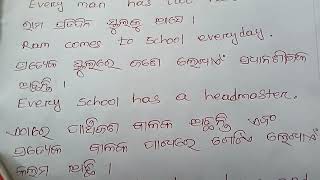 Every man has
ରାମ ପ୍ରତିଦିନ ସ୍କୁଲକୁ ଆସେ ।
Ram comes to school everyday.
ପ୍ରତ୍ୟେକ ସ୍କୁଲରେ ଜଣେ ଲେଖାଏଁ ପ୍ରଧାନଶିକ୍ଷକ
ଅଛନ୍ତି ।
Every school has a headmaster.
ଏଠାରେ ପାଞ୍ଚଜଣ ବାଳକ ଅଛନ୍ତି ଏବଂ
ପ୍ରତ୍ୟେକ ବାଳକ ପାଖରେ ଗୋଟିଏ ଲେଖାଏଁ
କଲମ ଅଛି ।